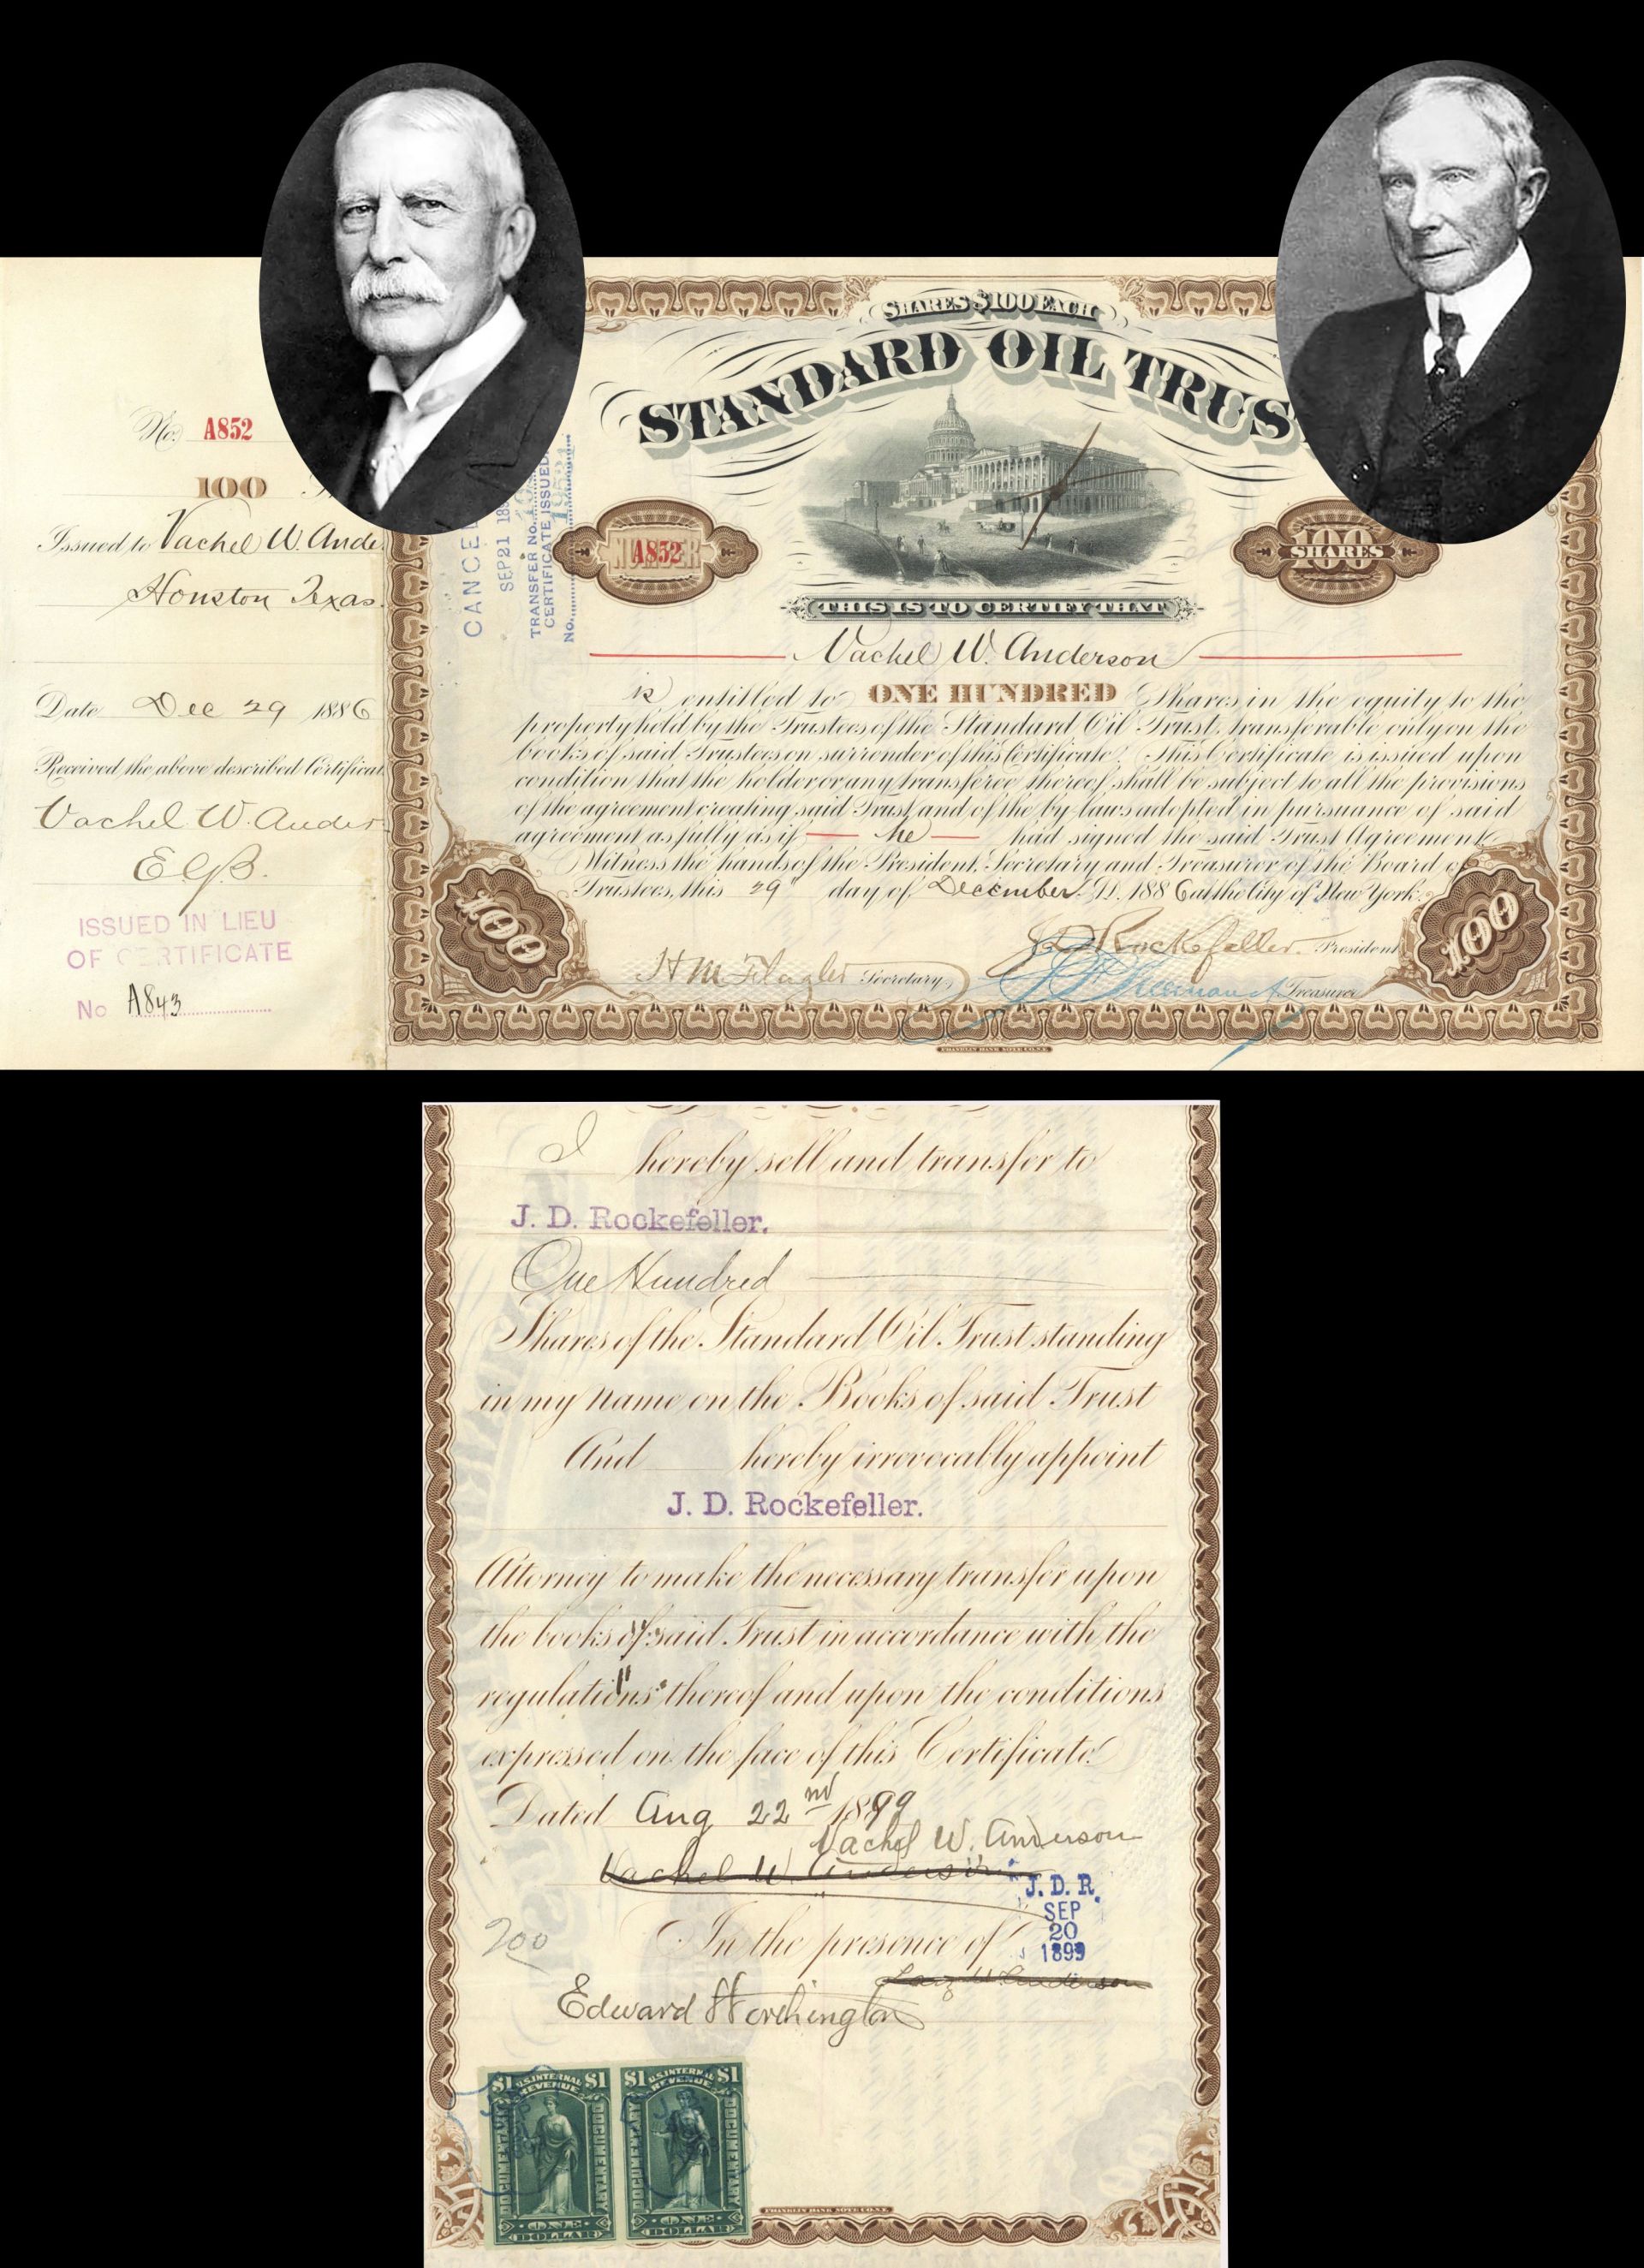 No. A852
100
Issued to Vachel W. Ande
Houston Texas.
Date Dec 29 1886
Received the above described Certificat
Vachel W. Ander
E.G.B.
ISSUED IN LIEU
OF CERTIFICATE
No A843
CANCE
SEP 21 18
TRANSFER No.
CERTIFICATE ISSUED
NO.
SHARES $100 EACH
STANDARD OIL TRUS
NUMBER
A852
100
SHARES
THIS IS TO CERTIFY THAT
Vachel W. Anderson
is entitled to ONE HUNDRED Shares in the equity to the
property held by the Trustees of the Standard Oil Trust, transferable only on the
books of said Trustees on surrender of this Certificate. This Certificate is issued upon
condition that the holder or any transferee thereof shall be subject to all the provisions
of the agreement creating said Trust and of the by-laws adopted in pursuance of said
agreement as fully as if he had signed the said Trust Agreement.
Witness the hands of the President, Secretary and Treasurer of the Board of
Trustees, this 29" day of December A.D. 1886 at the City of New York.
100
100
J D Rockefeller. President
H M Flagler Secretary,
Treasurer
FRANKLIN BANK NOTE CO. N.Y.
I hereby sell and transfer to
J. D. Rockefeller.
One Hundred
Shares of the Standard Oil Trust standing
in my name on the Books of said Trust
And hereby irrevocably appoint
J. D. Rockefeller.
Attorney to make the necessary transfer upon
the books of said Trust in accordance with the
regulations thereof and upon the conditions
expressed on the face of this Certificate.
Dated Aug 22nd 1899
Vachel W. Anderson
Vachel W. Anderson
J. D. R.
SEP
20
1899
200
In the presence of
Edward Worthington
$1 U.S. INTERNAL $1
REVENUE
DOCUMENTARY
DOCUMENTARY
ONE
DOLLAR
$1 U.S. INTERNAL $1
REVENUE
DOCUMENTARY
DOCUMENTARY
ONE
DOLLAR
FRANKLIN BANK NOTE CO. N.Y.